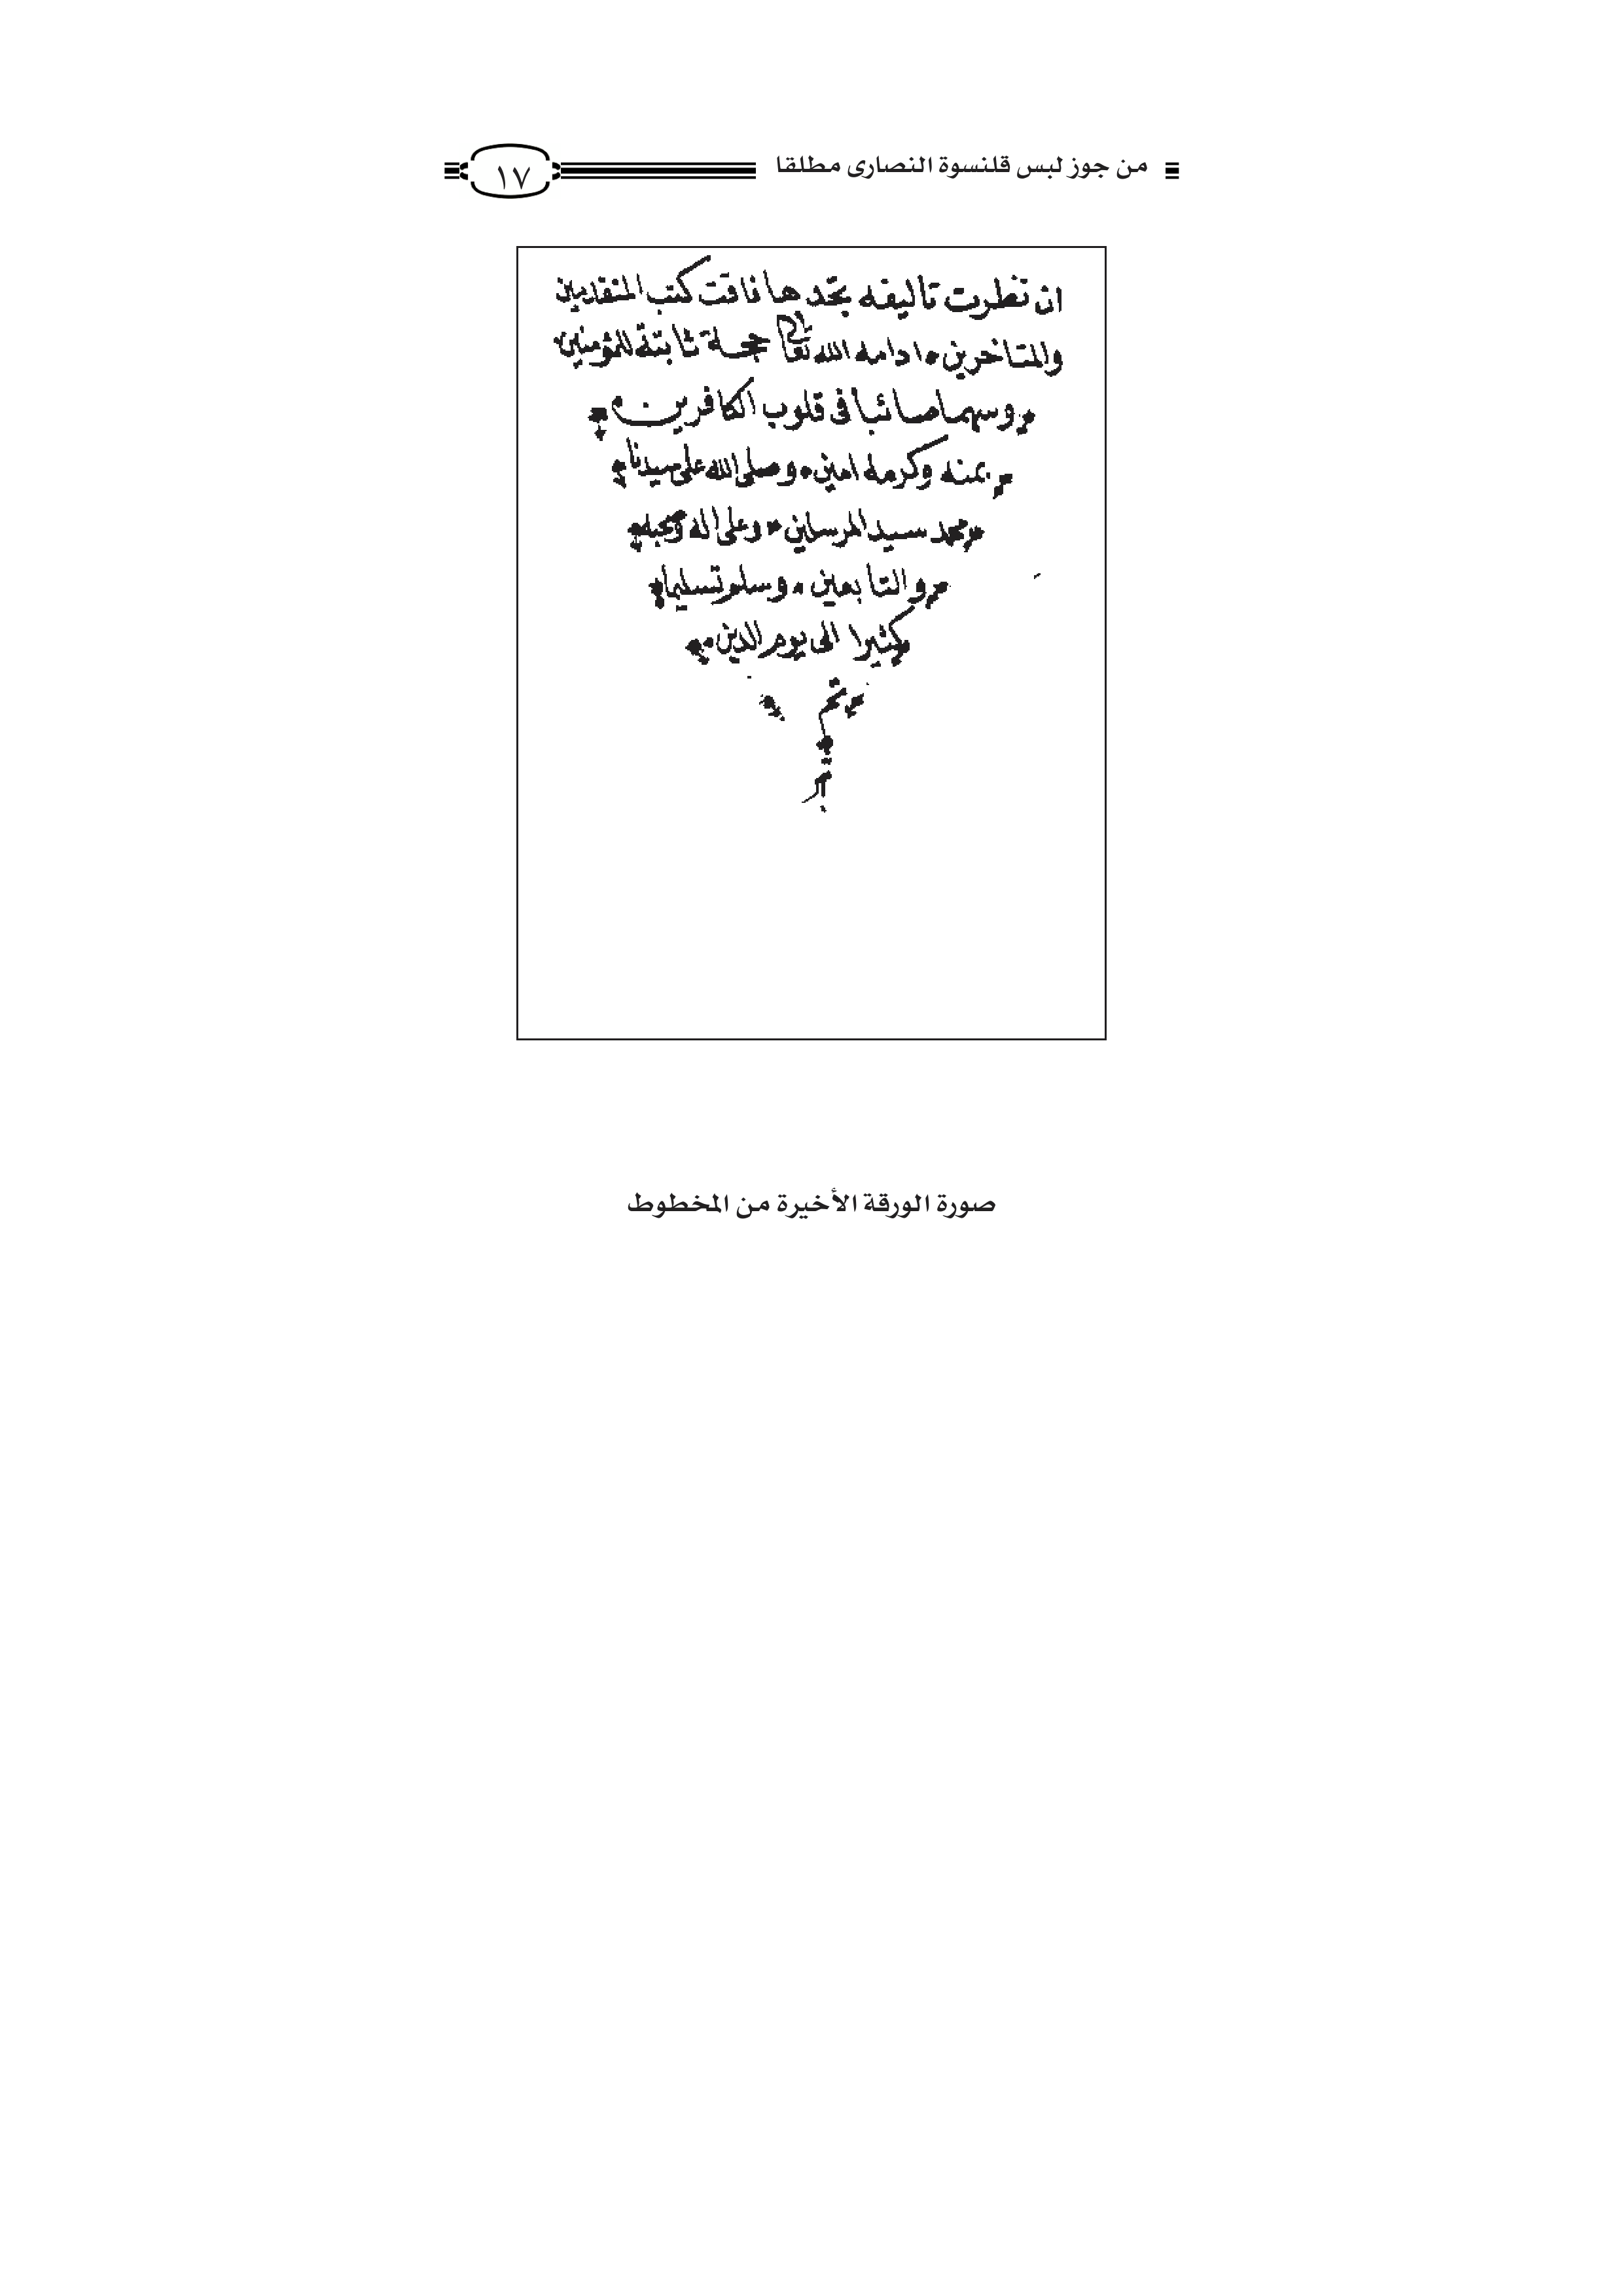 من جوز لبس قلنسوة النصارى مطلقا
١٧
ان نظرت تاليفه تجدها فاقت كتب المتقدمين
والمتاخرين ادامه الله تعالى حجة ثابتة للمؤمنين
وسهما صائبا فى قلوب الكافرين
بمنه وكرمه امين وصلى الله على سيدنا
محمد سيد المرسلين وعلى اله وصحبه
والتابعين وسلم تسليما
كثيرا الى يوم الدين
تم
صورة الورقة الأخيرة من المخطوط